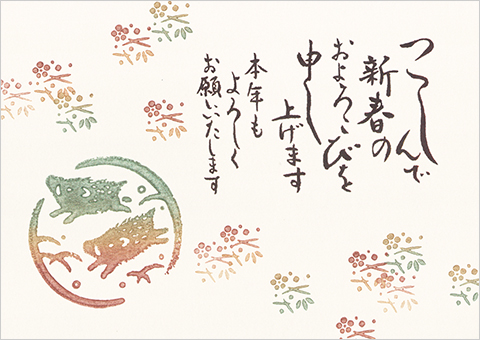 つつしんで
新春の
およろこびを
申し
上げます
本年も
よろしく
お願いいたします